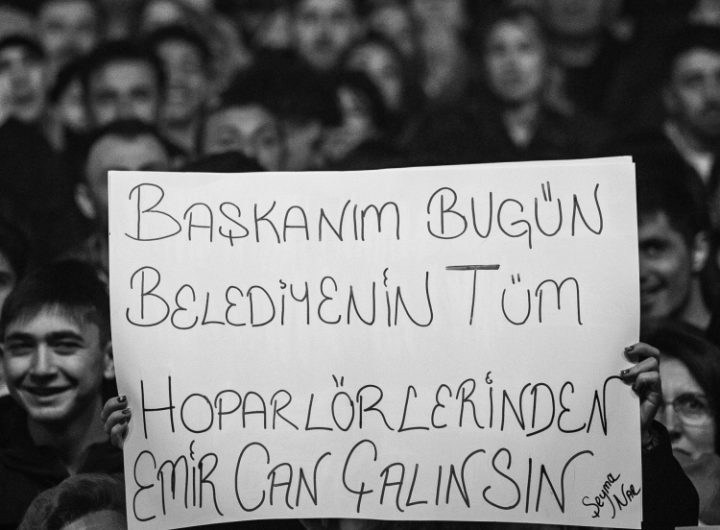 BAŞKANIM BUGÜN
BELEDİYENİN TÜM
HOPARLÖRLERİNDEN
EMİR CAN ÇALINSIN
Şeyma
Nar